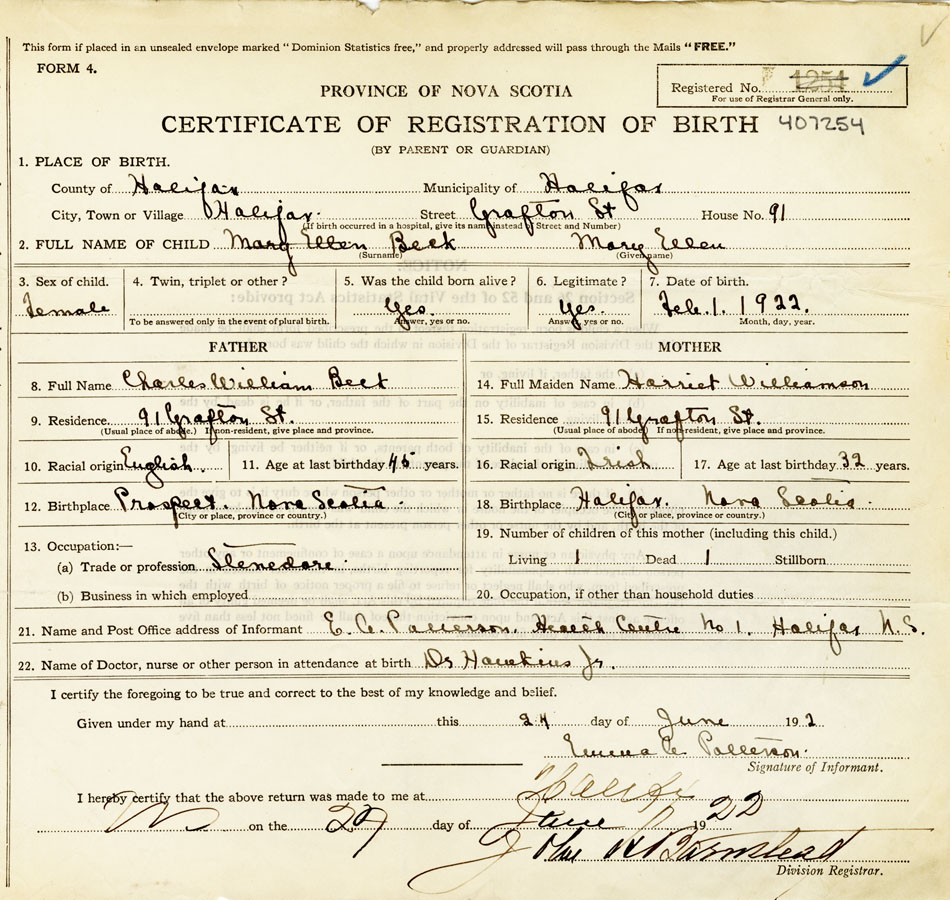 This form if placed in an unsealed envelope marked "Dominion Statistics free," and properly addressed will pass through the Mails "FREE."
FORM 4.
Registered No. 1254
For use of Registrar General only.
PROVINCE OF NOVA SCOTIA
CERTIFICATE OF REGISTRATION OF BIRTH 407254
(BY PARENT OR GUARDIAN)
1. PLACE OF BIRTH.
County of Halifax Municipality of Halifax
City, Town or Village Halifax. Street Grafton St House No. 91
(If birth occurred in a hospital, give its name instead of Street and Number)
2. FULL NAME OF CHILD Mary Ellen Beck Mary Ellen
(Surname) (Given name)
3. Sex of child. 4. Twin, triplet or other? 5. Was the child born alive? 6. Legitimate? 7. Date of birth.
Female Yes. Yes. Feb. 1. 1922.
To be answered only in the event of plural birth. Answer, yes or no. Answer, yes or no. Month, day, year.
FATHER MOTHER
8. Full Name Charles William Beck 14. Full Maiden Name Harriet Williamson
9. Residence 91 Grafton St. 15. Residence 91 Grafton St.
(Usual place of abode.) If non-resident, give place and province. (Usual place of abode) If non-resident, give place and province.
10. Racial origin English. 11. Age at last birthday 45 years. 16. Racial origin Irish 17. Age at last birthday 32 years.
12. Birthplace Prospect. Nova Scotia. 18. Birthplace Halifax. Nova Scotia.
(City or place, province or country.) (City or place, province or country.)
13. Occupation:— 19. Number of children of this mother (including this child.)
(a) Trade or profession Stevedore. Living 1 Dead 1 Stillborn
(b) Business in which employed 20. Occupation, if other than household duties
21. Name and Post Office address of Informant E. A. Patterson. Health Centre No 1. Halifax N.S.
22. Name of Doctor, nurse or other person in attendance at birth Dr Hawkins Jr.
I certify the foregoing to be true and correct to the best of my knowledge and belief.
Given under my hand at this 24 day of June 192
Emma A. Patterson.
Signature of Informant.
I hereby certify that the above return was made to me at Halifax
on the 29 day of June 1922
John
Division Registrar.